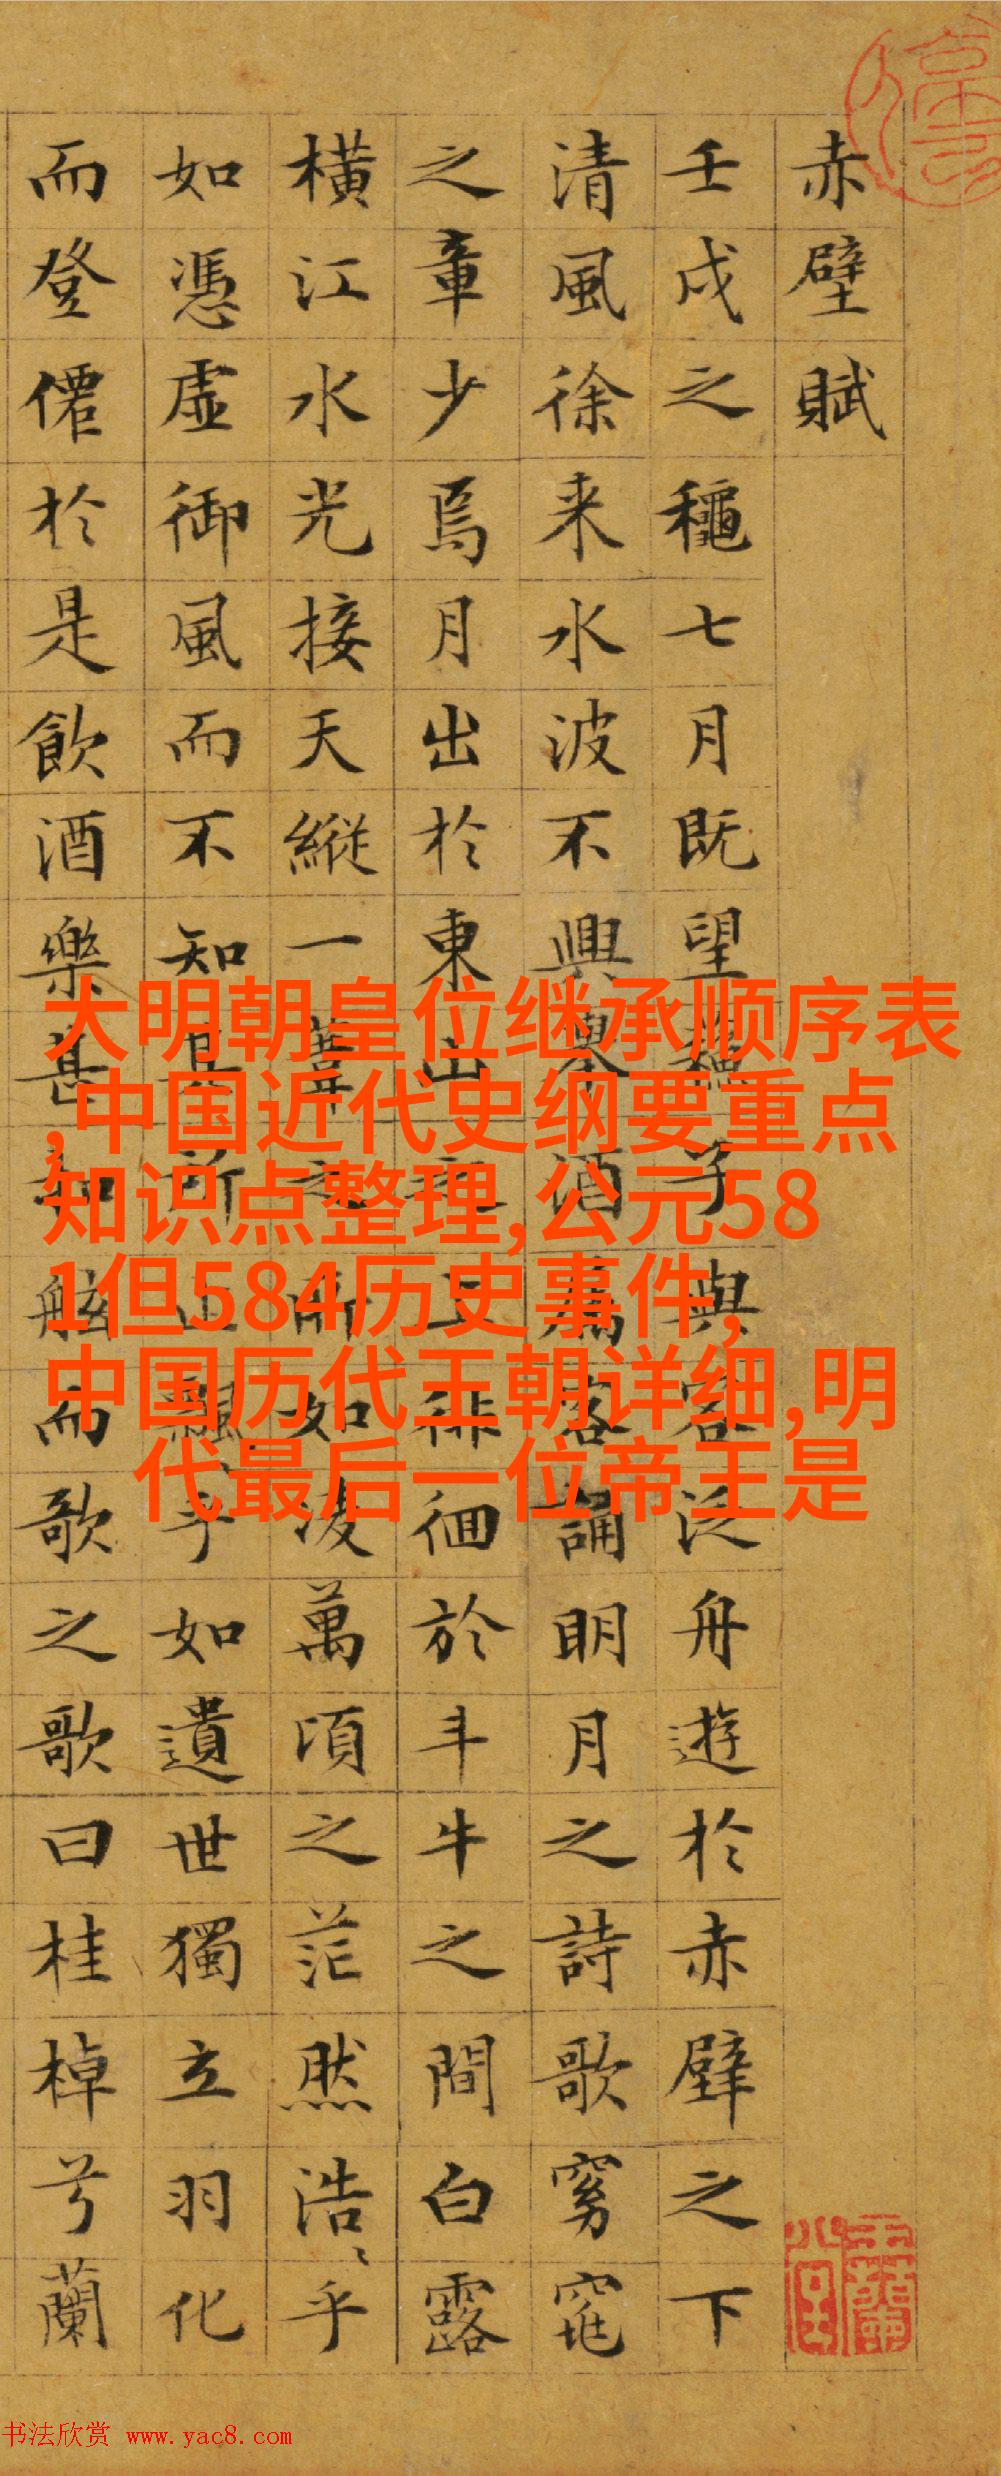 赤壁賦
壬戌之龝七月既望蘓子與客泛舟遊於赤壁之下
清風徐来水波不興舉酒屬客誦明月之詩歌窈窕
之章少焉月出於東山之上徘徊於斗牛之間白露
橫江水光接天縱一葦之所如凌萬頃之茫然浩〻乎
如憑虛御風而不知其所止飄〻乎如遺世獨立羽化
而登僊於是飲酒樂甚扣舷而歌之歌曰桂棹兮蘭
大明朝皇位继承顺序表
,中国近代史纲要重点
知识点整理,公元58
1但584历史事件,
中国历代王朝详细,明
代最后一位帝王是
书法欣赏 www.yac8.com